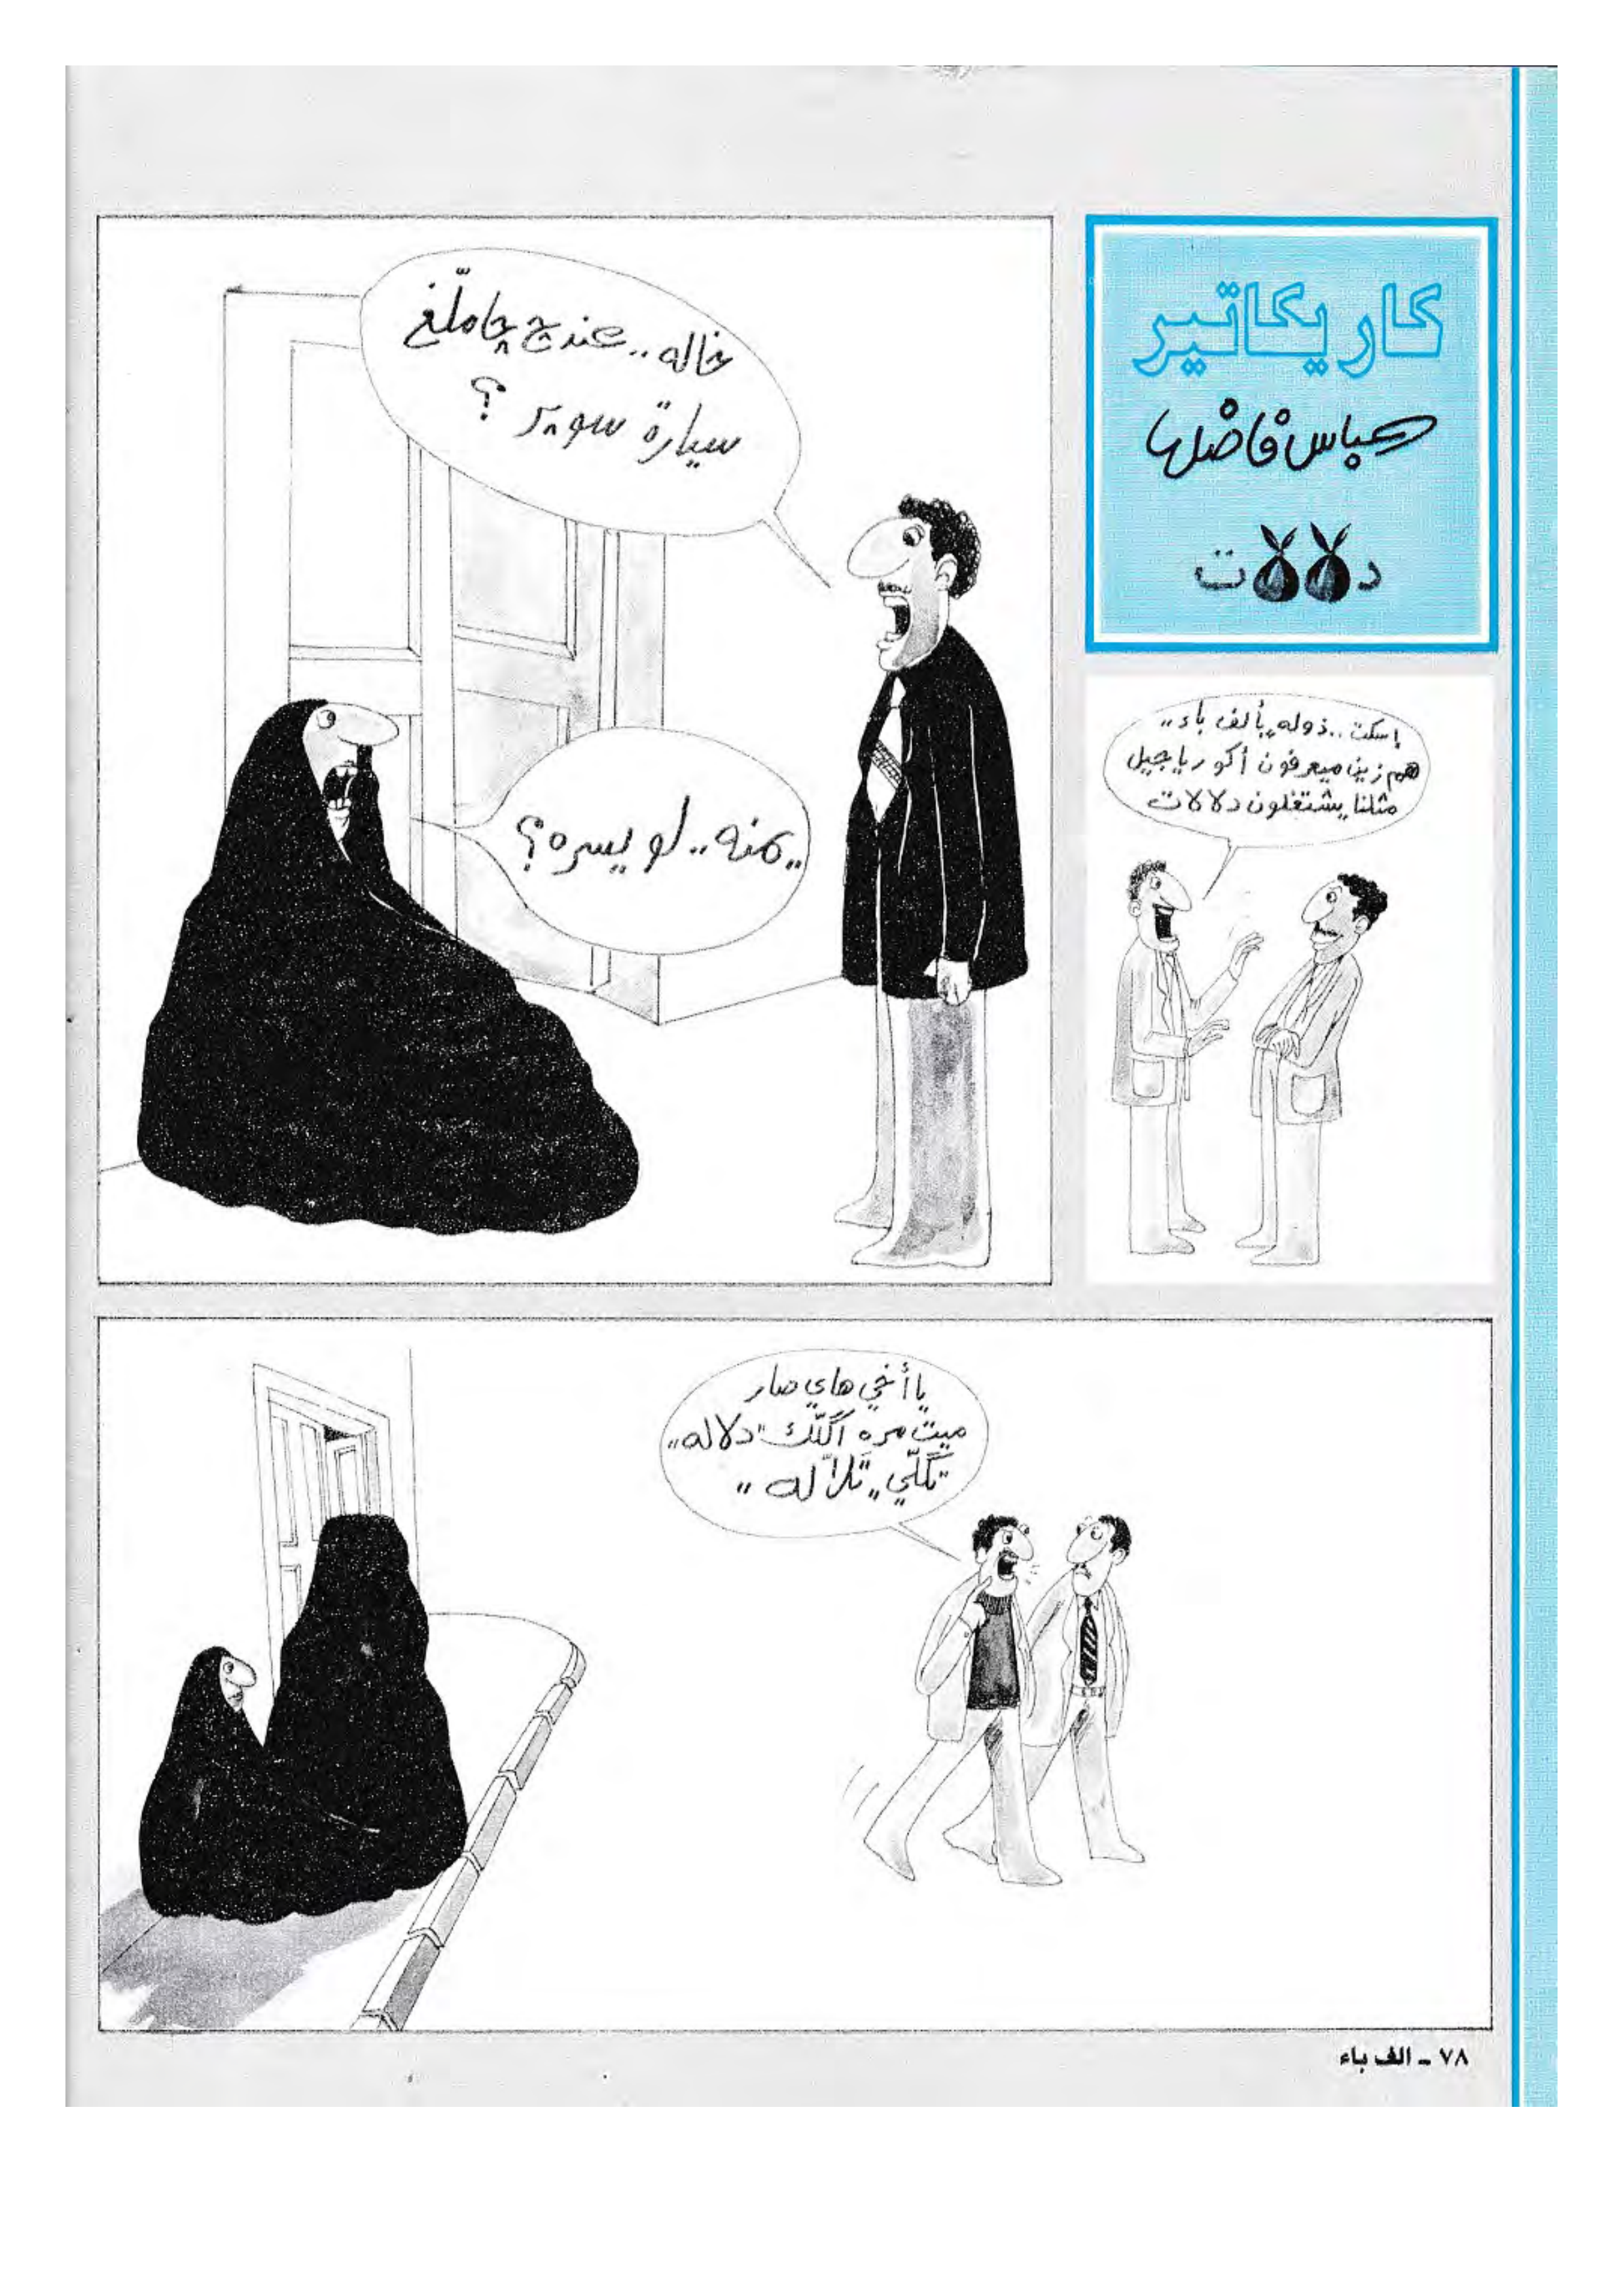 كاريكاتير
عباس فاضل
دلالات
خاله.. عندج چاملّغ
سيارة سوپر ؟
يمنه.. لو يسره؟
إسكت.. ذوله بألف باء..
هم زين ميعرفون أكو رياجيل
مثلنا يشتغلون دلالات
يا أخي هاي صار
ميت مره أگلّك "دلاله"
تگلّي "تلاّله"
٧٨ - الف باء